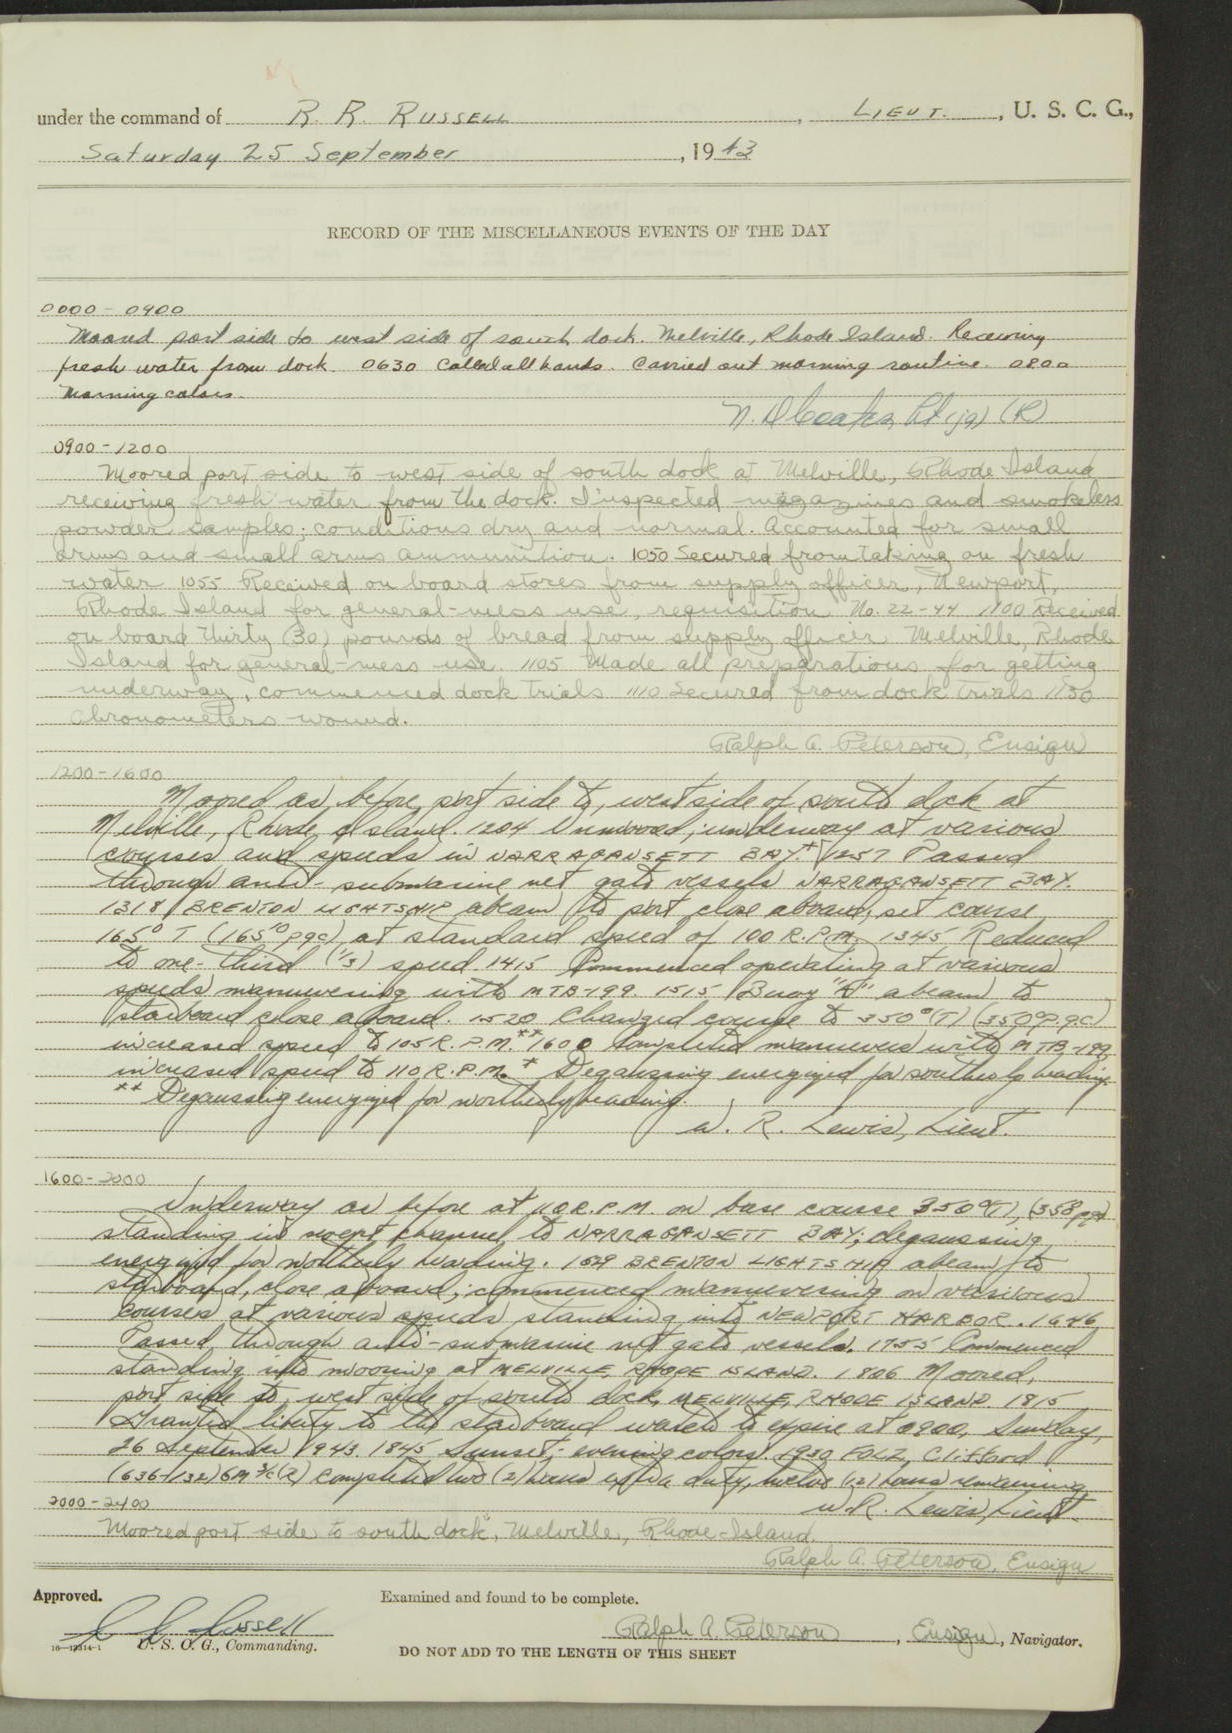 under the command of R. R. RUSSELL, LIEUT., U. S. C. G.,
Saturday 25 September, 1943
RECORD OF THE MISCELLANEOUS EVENTS OF THE DAY
0000 - 0900
Moored port side to west side of south dock. Melville, Rhode Island. Receiving
fresh water from dock. 0630 Called all hands. Carried out morning routine. 0800
Morning colors.
Lt (jg) (R)
0900-1200
Moored port side to west side of south dock at Melville, Rhode Island
receiving fresh water from the dock. Inspected magazines and smokeless
powder samples; conditions dry and normal. Accounted for small
arms and small arms ammunition. 1050 Secured from taking on fresh
water 1055 Received on board stores from supply officer, Newport,
Rhode Island for general-mess use, requisition No. 22-44 1100 Received
on board thirty (30) pounds of bread from supply officer Melville, Rhode
Island for general-mess use. 1105 Made all preparations for getting
underway, commenced dock trials 1110 Secured from dock trials 1130
Chronometers wound.
Ralph A. Peterson, Ensign
1200-1600
Moored as before, port side to, west side of south dock at
Melville, Rhode Island. 1204 Unmoored; underway at various
courses and speeds in NARRAGANSETT BAY.* 1257 Passed
through anti-submarine net gate vessels NARRAGANSETT BAY.
1318 BRENTON LIGHTSHIP abeam to port close aboard, set course
165° T (165° pgc) at standard speed of 100 R.P.M. 1345 Reduced
to one-third (1/3) speed. 1415 Commenced operating at various
speeds maneuvering with MTB-199. 1515 Buoy "A" abeam to
starboard close aboard. 1520 Changed course to 350°(T) (350° p.g.c.)
increased speed to 105 R.P.M.** 1600 Completed maneuvers with MTB-199
increased speed to 110 R.P.M. * Degaussing energized for southerly heading.
** Degaussing energized for northerly heading.
W. R. Lewis, Lieut.
1600-2000
Underway as before at 110 R.P.M. on base course 350°(T), (358 pgc)
standing in swept channel to NARRAGANSETT BAY; degaussing
energized for northerly heading. 1629 BRENTON LIGHTSHIP abeam to
starboard, close aboard; commenced maneuvering on various
courses at various speeds standing into NEWPORT HARBOR. 1646
Passed through anti-submarine net gate vessels. 1755 Commenced
standing into mooring at MELVILLE, RHODE ISLAND. 1806 Moored,
port side to, west side of south dock, MELVILLE, RHODE ISLAND 1815
Granted liberty to the starboard watch to expire at 0900, Sunday,
26 September 1943. 1845 Sunset; evening colors. 1930 FOLZ, Clifford
(636-132) GM 3/c (R) completed two (2) hours extra duty, twelve (12) hours remaining
W. R. Lewis, Lieut.
2000-2400
Moored port side to south dock, Melville, Rhode Island.
Ralph A. Peterson, Ensign
Approved.
Examined and found to be complete.
Russell
U. S. C. G., Commanding.
Ralph A. Peterson, Ensign, Navigator.
DO NOT ADD TO THE LENGTH OF THIS SHEET